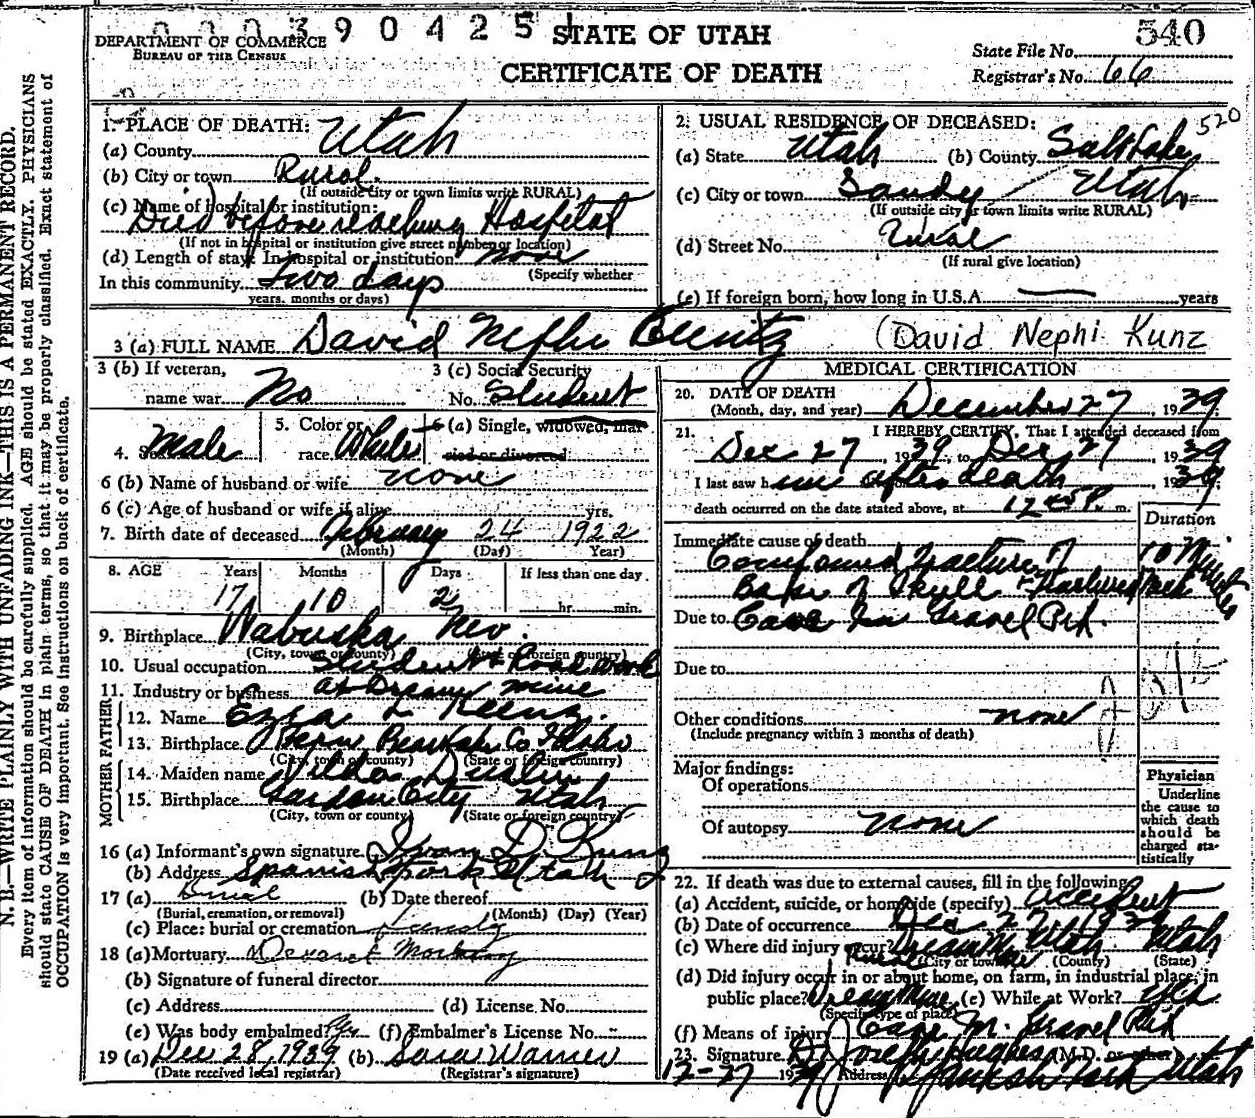 0 0 0 3 9 0 4 2 5 1
STATE OF UTAH
540
DEPARTMENT OF COMMERCE
BUREAU OF THE CENSUS
CERTIFICATE OF DEATH
State File No.
Registrar's No. 66
N. B.—WRITE PLAINLY WITH UNFADING INK—THIS IS A PERMANENT RECORD.
Every item of information should be carefully supplied. AGE should be stated EXACTLY. PHYSICIANS
should state CAUSE OF DEATH in plain terms, so that it may be properly classified. Exact statement of
OCCUPATION is very important. See instructions on back of certificate.
1. PLACE OF DEATH:
(a) County Utah
(b) City or town Rural
(If outside city or town limits write RURAL)
(c) Name of hospital or institution:
Died before reaching Hospital
(If not in hospital or institution give street number or location)
(d) Length of stay: In hospital or institution none
(Specify whether
In this community Two days
years, months or days)
2. USUAL RESIDENCE OF DECEASED: 520
(a) State Utah (b) County Salt Lake
(c) City or town Sandy Utah
(If outside city or town limits write RURAL)
(d) Street No. Rural
(If rural give location)
(e) If foreign born, how long in U.S.A. — years
3 (a) FULL NAME David Nephi (David Nephi Kunz
3 (b) If veteran,
name war No
3 (c) Social Security
No. Student
4. Sex Male
5. Color or
race White
6 (a) Single, widowed, mar-
ried or divorced
6 (b) Name of husband or wife none
6 (c) Age of husband or wife if alive yrs.
7. Birth date of deceased February 24 1922
(Month) (Day) Year)
8. AGE Years Months Days If less than one day
17 10 2 hr. min.
9. Birthplace Wabuska Nev.
(City, town or county) (State or foreign country)
10. Usual occupation Student & Road work
11. Industry or business at Dream mine
FATHER
12. Name Ezra L Kunz.
13. Birthplace Bern Bear Lake Co Idaho
(City, town or county) (State or foreign country)
MOTHER
14. Maiden name Vilda
15. Birthplace Garden City Utah
(City, town or county) (State or foreign country)
16 (a) Informant's own signature Ivan D. Kunz
(b) Address Spanish Fork Utah
17 (a) Burial (b) Date thereof
(Burial, cremation, or removal) (Month) (Day) (Year)
(c) Place: burial or cremation Sandy
18 (a) Mortuary Deseret Mortuary
(b) Signature of funeral director
(c) Address (d) License No.
(e) Was body embalmed? Yes (f) Embalmer's License No.
19 (a) Dec 28, 1939 (b) Sara Warner
(Date received local registrar) (Registrar's signature)
MEDICAL CERTIFICATION
20. DATE OF DEATH
(Month, day, and year) December 27, 1939
21. I HEREBY CERTIFY, That I attended deceased from
Dec 27, 1939, to Dec 27, 1939
I last saw him after death, 1939
death occurred on the date stated above, at 12 45 P. m.
Duration
Immediate cause of death
Compound fracture of 10 Minutes
Base of Skull & fractured neck
Due to Cave In Gravel Pit.
Due to
Other conditions none
(Include pregnancy within 3 months of death)
Major findings:
Of operations
Of autopsy none
Physician
Underline
the cause to
which death
should be
charged sta-
tistically
22. If death was due to external causes, fill in the following
(a) Accident, suicide, or homicide (specify) Accident
(b) Date of occurrence Dec 27 1939
(c) Where did injury occur? Dream M. Utah Utah
Rural
(City or town) (County) (State)
(d) Did injury occur in or about home, on farm, in industrial place, in
public place? Dream Mine (e) While at Work? Yes
(Specify type of place)
(f) Means of injury Cave In Gravel Pit
23. Signature Joseph Hughes (M.D. or other)
12-27 1939 Address Spanish Fork Utah